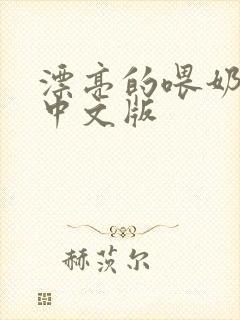 漂亮的喂奶
中文版
赫茨尔